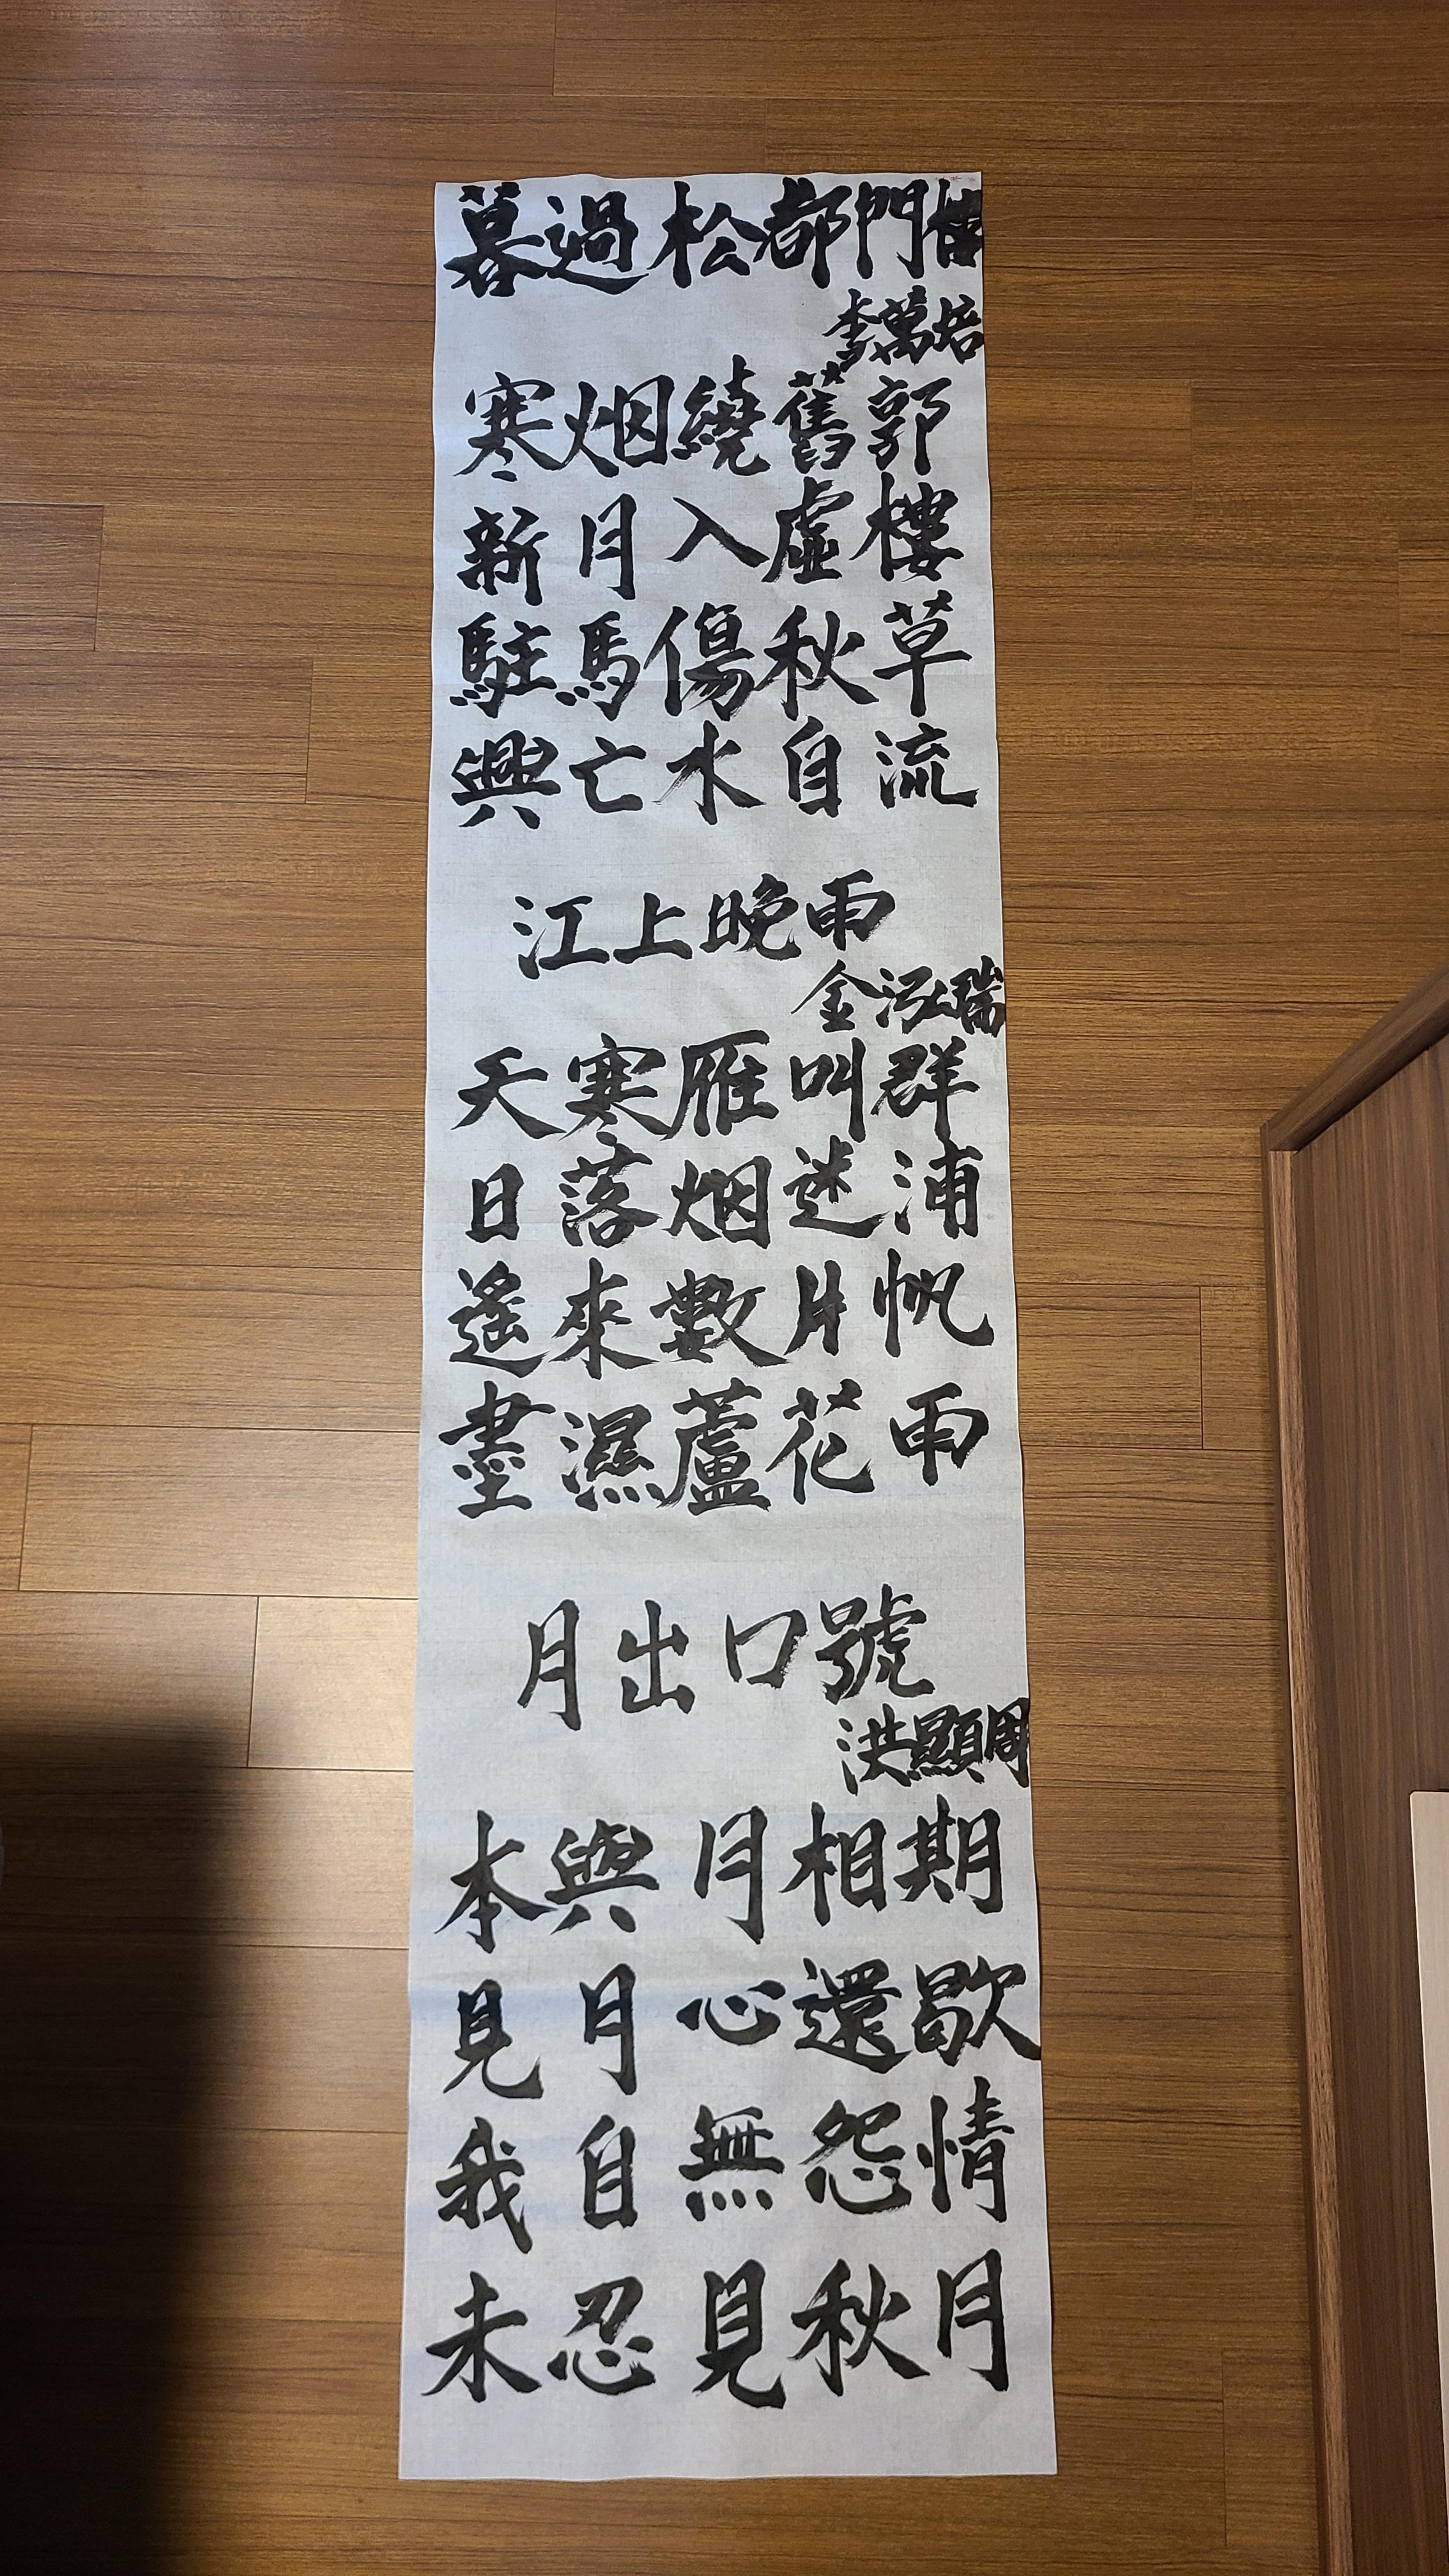 暮過松都門樓
李萬培
寒烟繞舊郭
新月入虛樓
駐馬傷秋草
興亡水自流
江上晩雨
金泓瑞
天寒雁叫群
日落烟迷浦
遙來數片帆
盡濕蘆花雨
月出口號
洪顯周
本與月相期
見月心還歇
我自無怨情
未忍見秋月